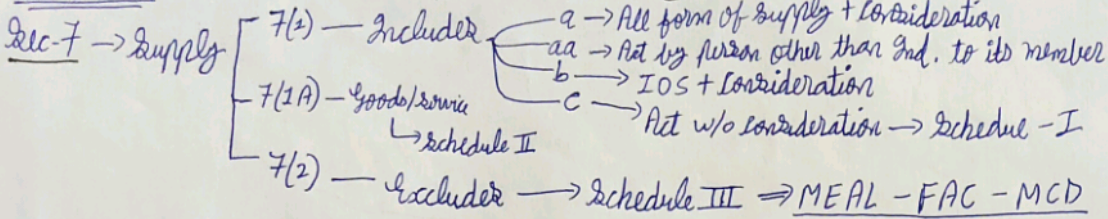 Sec-7 → Supply
7(1) — Includes
a → All form of supply + Consideration
aa → Act by person other than Ind. to its member
b → IOS + Consideration
c → Act w/o consideration → Schedue - I
7(1A) - Goods/Service
↳ Schedule II
7(2) — Excludes → Schedule III ⇒ MEAL - FAC - MCD